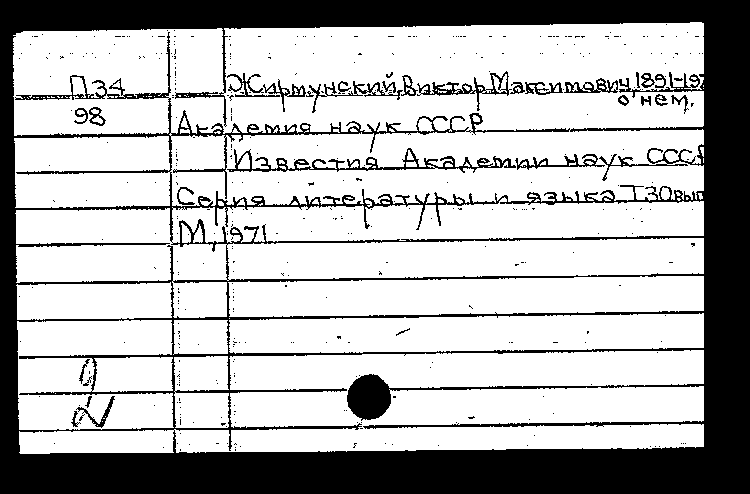 П34 Жирмунский, Виктор Максимович, 1891-197
98 о нем.
Академия наук СССР
Известия Академии наук СССР
Серия литературы и языка Т.30 вып
М, 1971
2